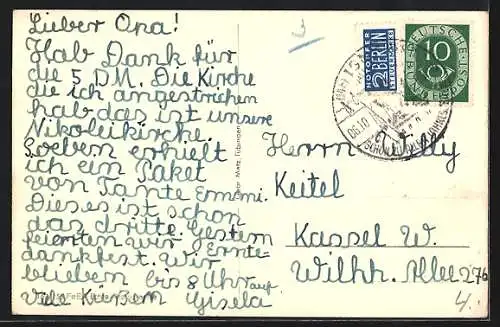 Lieber Opa!
Hab Dank für
die 5 DM. Die Kirche
die ich angestrichen
hab das ist unsre
Nikoleikirche.
Soeben erhielt
ich ein Paket
von Tante Emmi.
Dieses ist schon
das dritte. Gestern
feierten wir Ernte-
dankfest. Wir
blieben bis 8 Uhr auf.
Viele Küsse Gisela
3
NOTOPFER
2 BERLIN
STEUERMARKE
DEUTSCHE
BUNDESPOST
10
Herrn Willy
Keitel
Kassel W.
Wilhh. Allee 276
4.
Metz, Tübingen